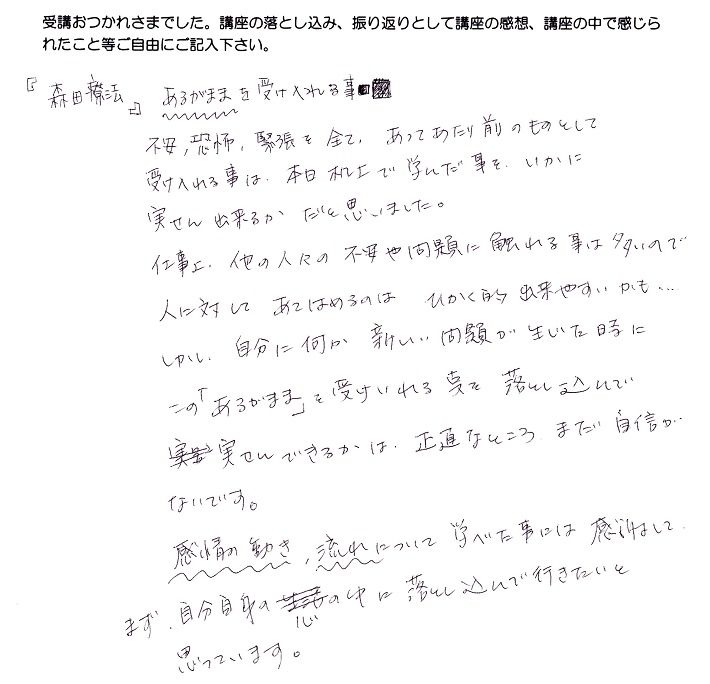 受講おつかれさまでした。講座の落とし込み、振り返りとして講座の感想、講座の中で感じら
れたこと等ご自由にご記入下さい。
『森田療法』 あるがままを受け入れる事
不安,恐怖,緊張を全て、あってあたり前のものとして
受け入れる事は、本日机上で学んだ事を、いかに
実せん出来るか だと思いました。
仕事上、他の人々の不安や問題に触れる事は多いので
人に対して あてはめるのは ひかく的出来やすいかも…
しかし、自分に何か新しい問題が生じた時に
この「あるがまま」を受けいれる事を 落とし込んで
実せんできるかは、正直なところ、まだ自信が
ないです。
感情の動き,流れについて学べた事には感謝して、
まず、自分自身の心の中に落とし込んで行きたいと
思っています。